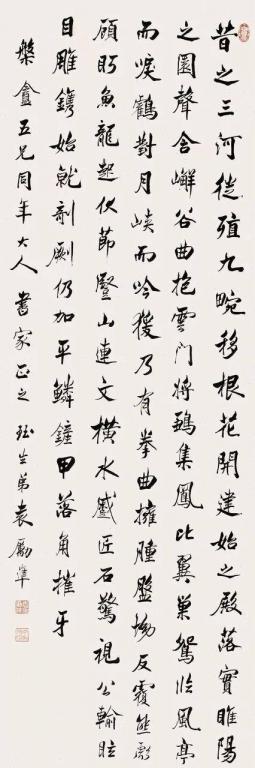 昔之三河徙殖九畹移根花開建始之殿落實睢陽
之園聲含嶰谷曲抱雲門將鶵集鳳比翼巢鴛臨風亭
而唳鶴對月峽而吟猨乃有拳曲擁腫盤坳反覆熊彪
顧盼魚龍起伏節豎山連文橫水蹙匠石驚視公輸眩
目雕鐫始就剞劂仍加平鱗鏟甲落角摧牙
槃盦五兄同年大人書家正之珏生弟袁勵準